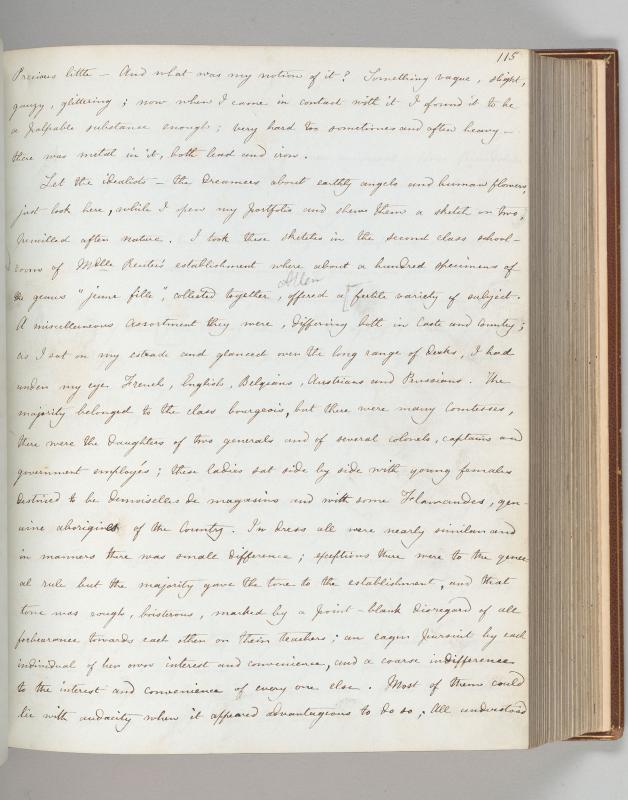 115
Precious little – And what was my notion of it? Something vague, slight,
gauzy, glittering; now when I came in contact with it I found it to be
a palpable substance enough; very hard too sometimes and often heavy –
there was metal in it, both lead and iron.
Let the idealists – the dreamers about earthly angels and human flowers,
just look here, while I open my portfolio and shew them a sketch or two,
pencilled after nature. I took these sketches in the second class school-
room of Mdlle Reuter's establishment where about a hundred specimens of
Allen
the genus "jeune fille", collected together, offered a [fertile variety of subject.
A miscellaneous assortment they were, differing both in caste and country;
as I sat on my estrade and glanced over the long range of desks, I had
under my eye French, English, Belgians, Austrians and Prussians. The
majority belonged to the class bourgeois, but there were many Countesses,
there were the daughters of two generals and of several colonels, captains and
government employés; these ladies sat side by side with young females
destined to be demoiselles de magasins and with some Flamandes, gen-
uine aborigines of the country. In dress all were nearly similar and
in manners there was small difference; exceptions there were to the gener-
al rule but the majority gave the tone to the establishment, and that
tone was rough, boisterous, marked by a point-blank disregard of all
forbearance towards each other or their teachers; an eager pursuit by each
individual of her own interest and convenience, and a coarse indifference
to the interest and convenience of every one else. Most of them could
lie with audacity when it appeared advantageous to do so; All understood